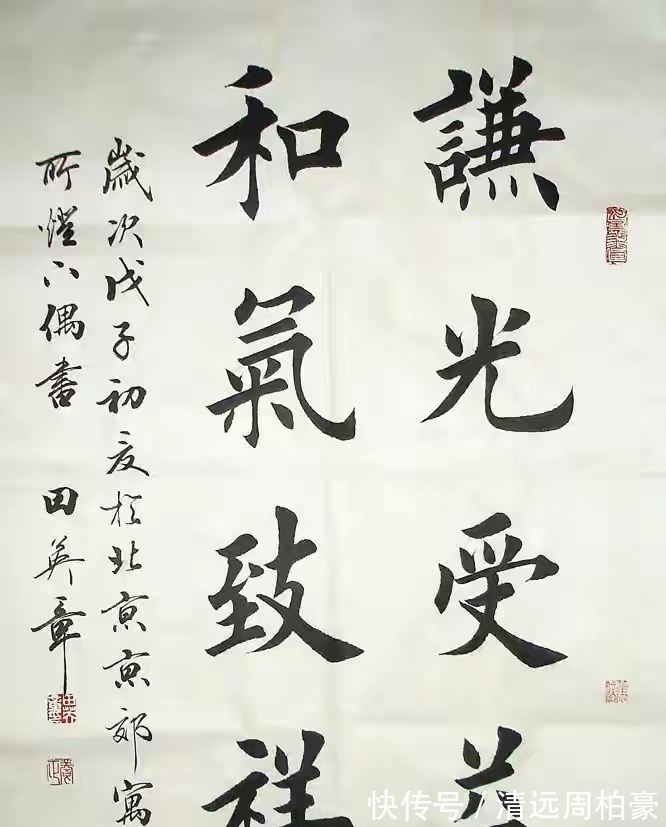 謙光受
和氣致祥
歲次戊子初夏於北京京郊寓
所燈下偶書 田英章
快传号／清远周柏豪